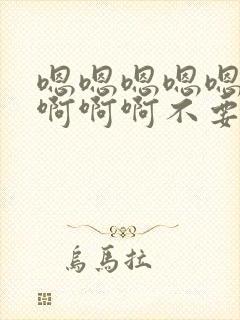 嗯嗯嗯嗯嗯
啊啊啊不要
烏馬拉